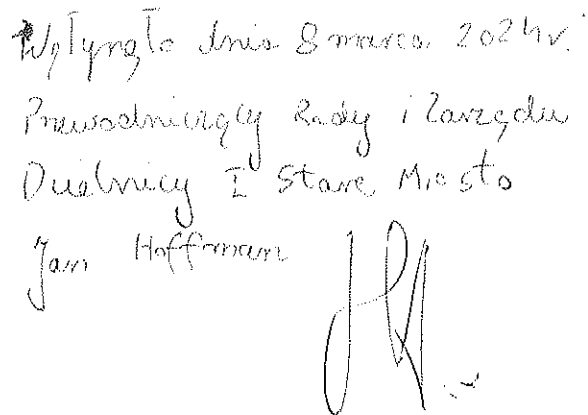 Wpłynęło dnia 8 marca 2024r.
Przewodniczący Rady i Zarządu
Dzielnicy I Stare Miasto
Jan Hoffman